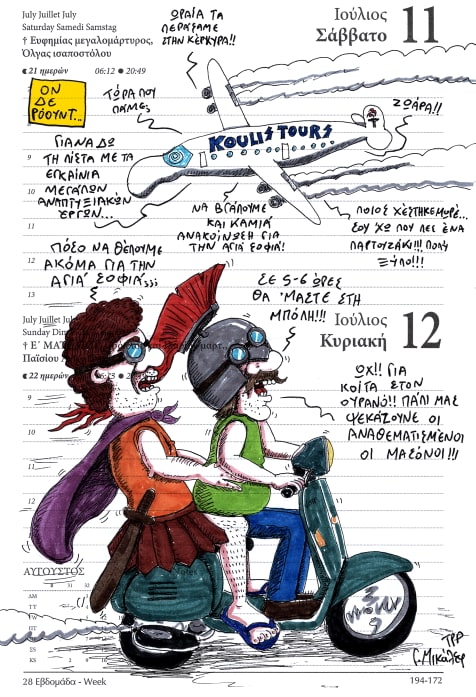 July Juillet July
Saturday Samedi Samstag
† Ευφημίας μεγαλομάρτυρος,
Όλγας ισαποστόλου
21 ημερών
06:12
20:49
Ιούλιος
Σάββατο
11
ΩΡΑΙΑ ΤΑ
ΠΕΡΑΣΑΜΕ
ΣΤΗΝ ΚΕΡΚΥΡΑ!!
ΟΝ
ΔΕ
ΡΟΟΥΝΤ...
ΤΩΡΑ ΠΟΥ
ΠΑΜΕ;
ΖΩΑΡΑ!!
KOULIS TOURS
ΓΙΑ ΝΑ ΔΩ
ΤΗ ΛΙΣΤΑ ΜΕ ΤΑ
ΕΓΚΑΙΝΙΑ
ΜΕΓΑΛΩΝ
ΑΝΑΠΤΥΞΙΑΚΩΝ
ΕΡΓΩΝ...
9
10
11
12
13
ΝΑ ΒΓΑΛΟΥΜΕ
ΚΑΙ ΚΑΜΙΑ
ΑΝΑΚΟΙΝΩΣΗ ΓΙΑ
ΤΗΝ ΑΓΙΑ ΣΟΦΙΑ!
ΠΟΙΟΣ ΧΕΣΤΗΚΕ ΜΩΡΕ...
ΣΟΥ ΧΩ ΠΟΥ ΛΕΣ ΕΝΑ
ΠΑΡΤΟΥΖΑΚΙ!!! ΠΟΛΥ
ΞΥΛΟ!!!
ΠΟΣΟ ΝΑ ΘΕΛΟΥΜΕ
ΑΚΟΜΑ ΓΙΑ ΤΗΝ
ΑΓΙΑ ΣΟΦΙΑ;;;
ΣΕ 5-6 ΩΡΕΣ
ΘΑ 'ΜΑΣΤΕ ΣΤΗ
ΜΠΟΛΗ!!!
July Juillet July
† Ε΄ ΜΑΤ
Παϊσίου
22 ημερών
Ιούλιος
Κυριακή
12
ΟΧΙ! ΓΙΑ
ΚΟΙΤΑ ΣΤΟΝ
ΟΥΡΑΝΟ!! ΠΑΛΙ ΜΑΣ
ΨΕΚΑΖΟΥΝΕ ΟΙ
ΑΝΑΘΕΜΑΤΙΣΜΕΝΟΙ
ΟΙ ΜΑΣΟΝΟΙ!!!
9
10
11
12
ΑΥΓΟΥΣΤΟΣ
28 Εβδομάδα - Week
194-172